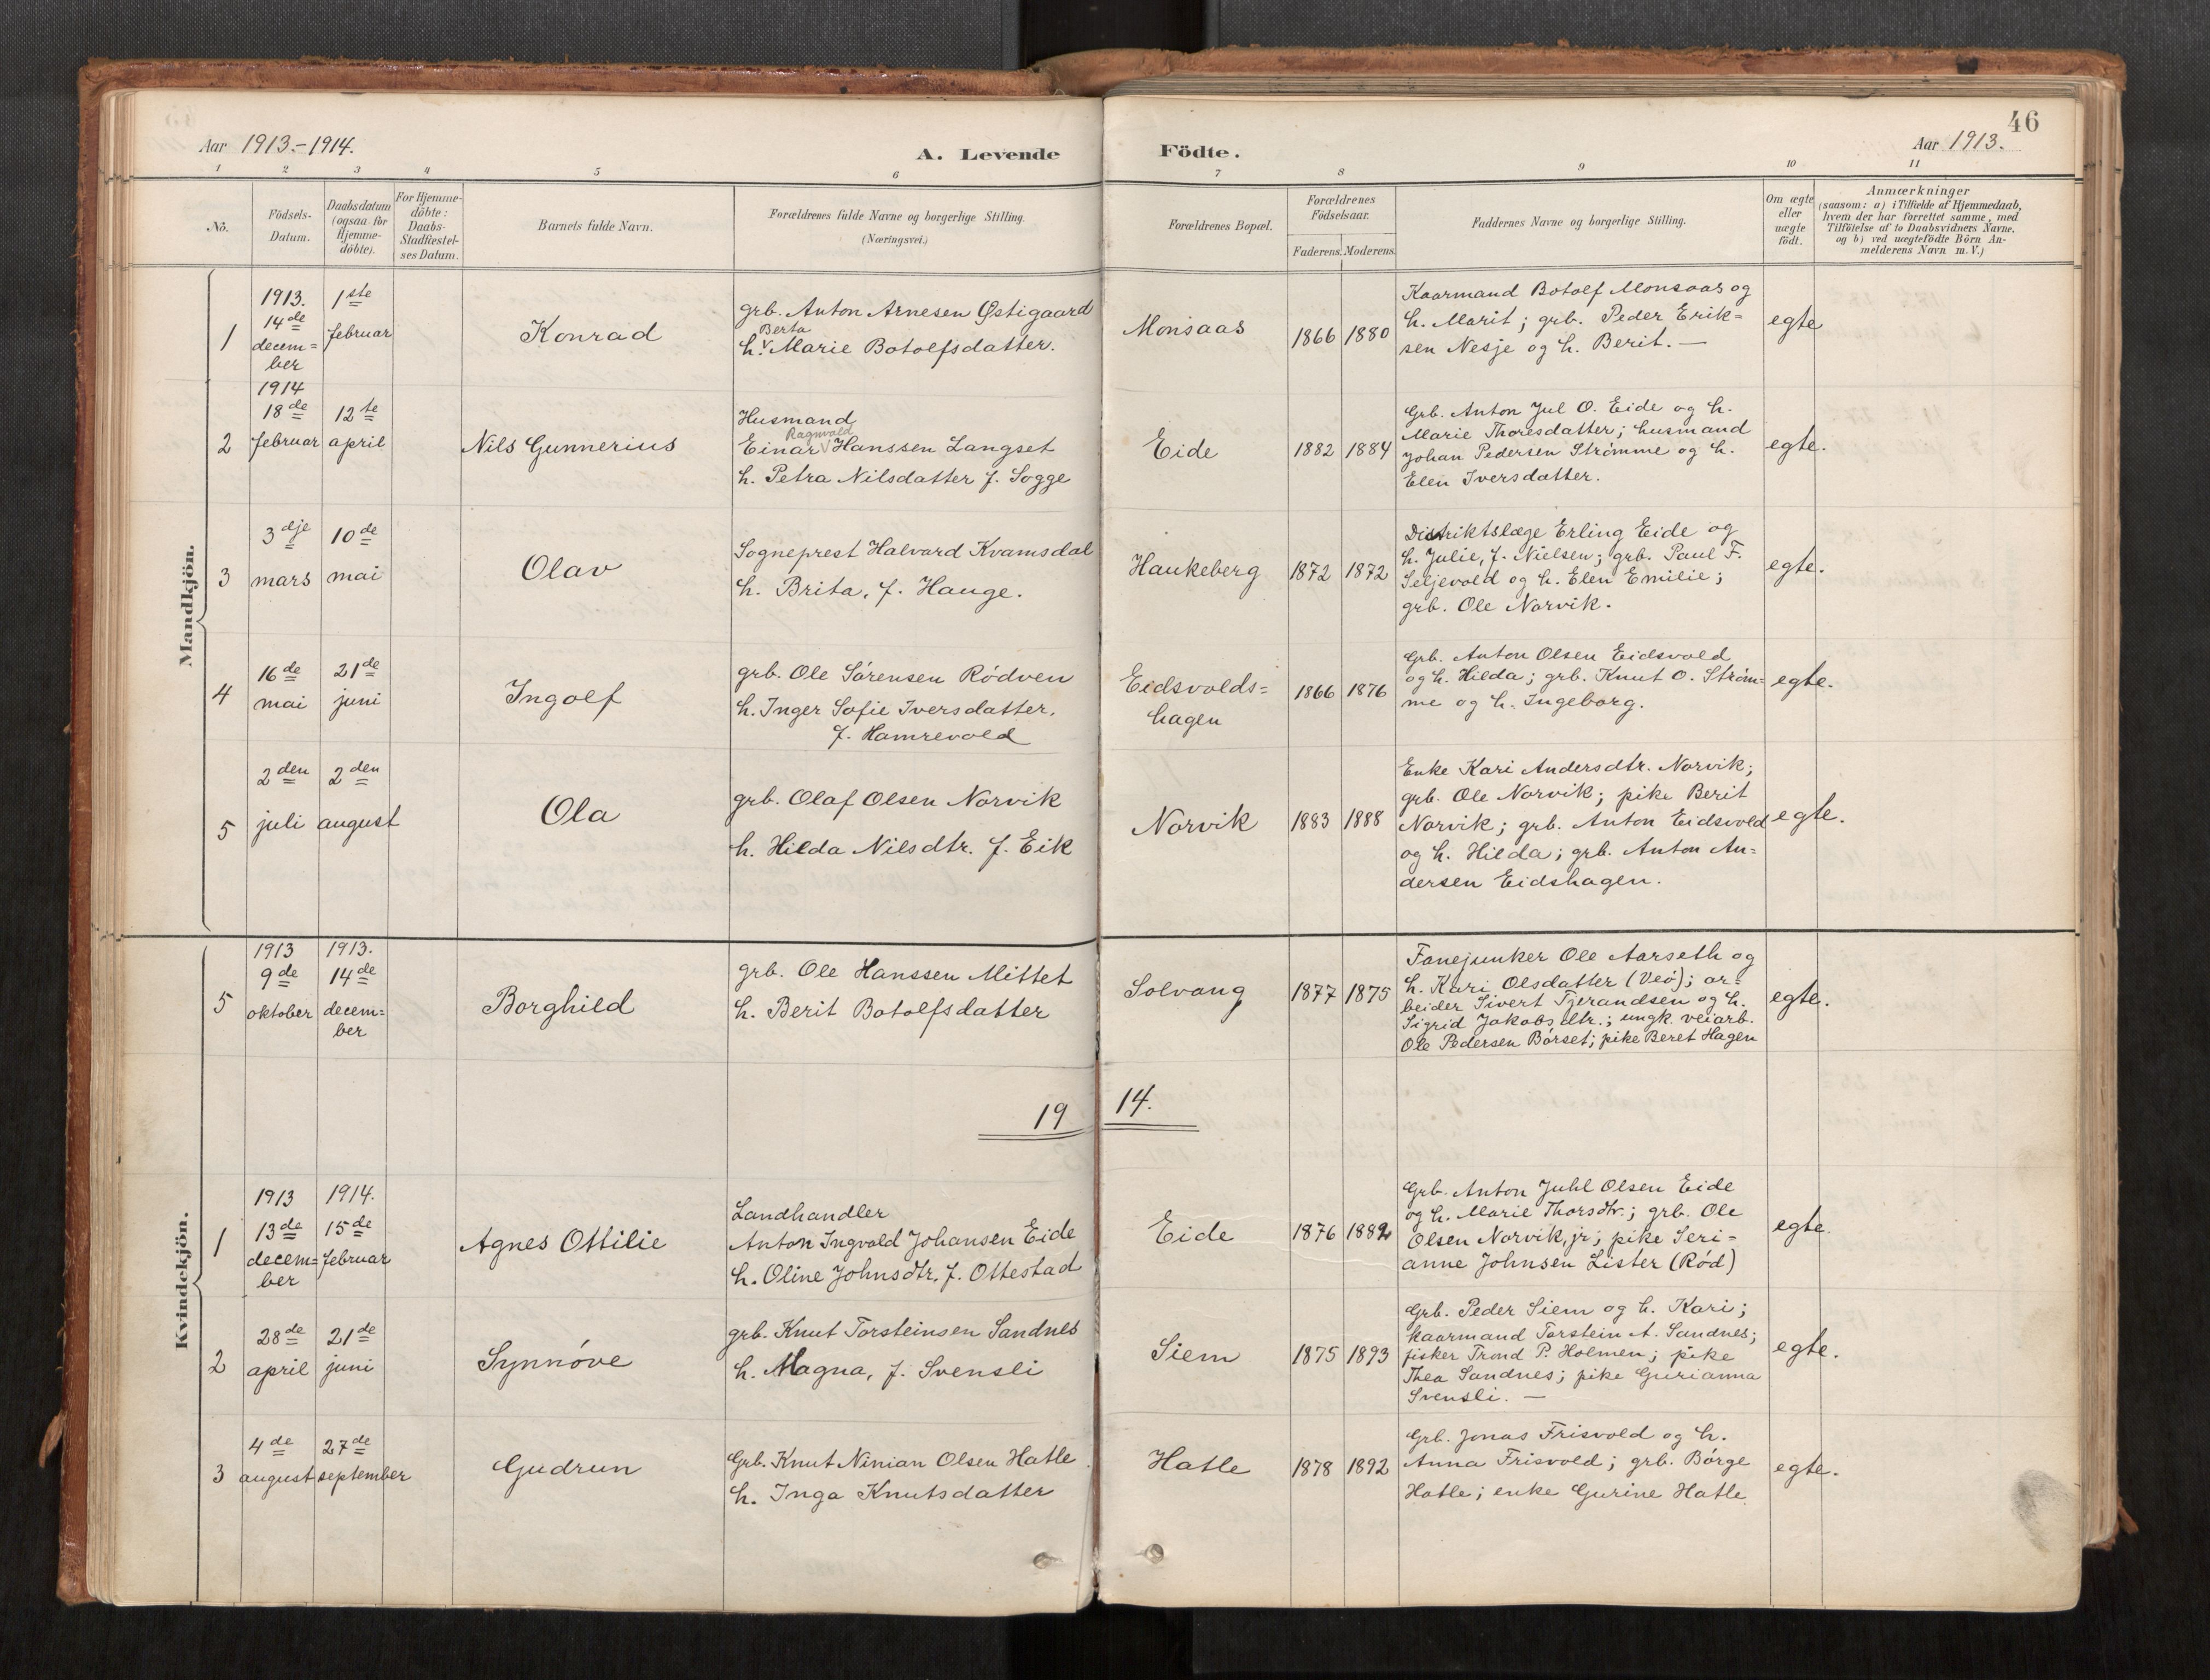 46
Aar 1913.-1914.
A. Levende Födte.
Aar 1913.
1 2 3 4 5 6 7 8 9 10 11
No.
Födsels-
Datum.
Daabsdatum
(ogsaa for
Hjemme-
döbte).
For Hjemme-
döbte:
Daabs-
Stadfæstel-
ses Datum.
Barnets fulde Navn.
Forældrenes fulde Navne og borgerlige Stilling.
(Næringsvei.)
Forældrenes Bopæl.
Forældrenes
Födselsaar.
Faderens. Moderens.
Faddernes Navne og borgerlige Stilling.
Om ægte
eller
uægte
födt.
Anmærkninger
(saasom: a) i Tilfælde af Hjemmedaab,
hvem der har forrettet samme, med
Tilföielse af to Daabsvidners Navne,
og b) ved uægtefödte Börn An-
melderens Navn m. V.)
Mandkjön.
1
1913.
14de
decem=
ber
1ste
februar
Konrad
grb. Anton Arnesen Østigaard
Berta
h. V Marie Botolfsdatter.
Monsaas
1866 1880
Kaarmand Botolf Monsaas og
h. Marit; grb. Peder Erik=
sen Nesje og h. Berit. —
egte
2
1914
18de
februar
12te
april
Nils Gunnerius
Husmand
Ragnvald
Einar V Hanssen Langset
h. Petra Nilsdatter f. Sogge
Eide
1882 1884
Grb. Anton Jul O. Eide og h.
Marie Thoresdatter; husmand
Johan Pedersen Strømme og h.
Elen Iversdatter.
egte.
3
3dje
mars
10de
mai
Olav
Sogneprest Halvard Kvamsdal
h. Brita, f. Hauge.
Haukeberg
1872 1872
Distriktslæge Erling Eide og
h. Julie, f. Nielsen; grb. Paul F.
Seljevold og h. Elen Emilie;
grb. Ole Norvik.
egte.
4
16de
mai
21de
juni
Ingolf
grb. Ole Sørensen Rødven
h. Inger Sofie Iversdatter,
f. Hamrevold
Eidsvolds=
hagen
1866 1876
Grb. Anton Olsen Eidsvold
og h. Hilda; grb. Knut O. Strøm=
me og h. Ingeborg.
egte.
5
2den
juli
2den
august
Ola
grb. Olaf Olsen Norvik
h. Hilda Nilsdtr. f. Eik
Norvik
1883 1888
Enke Kari Andersdtr. Norvik;
grb. Ole Norvik; pike Berit
Norvik; grb. Anton Eidsvold
og h. Hilda; grb. Anton An=
dersen Eidshagen.
egte.
Kvindekjön.
5
1913
9de
oktober
1913.
14de
decem=
ber
Borghild
grb. Ole Hanssen Mittet
h. Berit Botolfsdatter
Solvang
1877 1875
Fanejunker Ole Aarseth og
h. Kari Olsdatter (Veø); ar=
beider Sivert Tjerandsen og h.
Sigrid Jakobsdtr.; ungk. veiarb.
Ole Pedersen Børset; pike Beret Hagen
egte.
19 14.
1
1913
13de
decem=
ber
1914.
15de
februar
Agnes Ottilie
Landhandler
Anton Ingvald Johansen Eide
h. Oline Johnsdtr. f. Ottestad
Eide
1876 1882
Grb. Anton Juhl Olsen Eide
og h. Marie Thorsdtr.; grb. Ole
Olsen Norvik, jr; pike Seri=
anne Johnsen Lister (Rød)
egte.
2
28de
april
21de
juni
Synnøve
grb. Knut Torsteinsen Sandnes
h. Magna, f. Svensli
Siem
1875 1893
Grb. Peder Siem og h. Kari;
kaarmand Torstein A. Sandnes;
fisker Trond P. Holmen; pike
Thea Sandnes; pike Gurianna
Svensli. —
egte.
3
4de
august
27de
september
Gudrun
Grb. Knut Ninian Olsen Hatle
h. Inga Knutsdatter
Hatle
1878 1892
Grb. Jonas Frisvold og h.
Anna Frisvold; grb. Børge
Hatle; enke Gurine Hatle
egte.